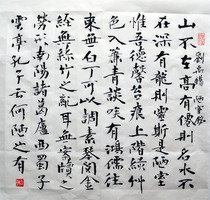 劉禹錫 陋室銘
山不在高有僊則名水不
在深有龍則靈斯是陋室
惟吾德馨苔痕上階綠草
色入簾青談咲有鴻儒往
來無白丁可以調素琴閱金
經無絲竹之亂耳無案牘之
勞形南陽諸葛廬西蜀子
雲亭孔子云何陋之有